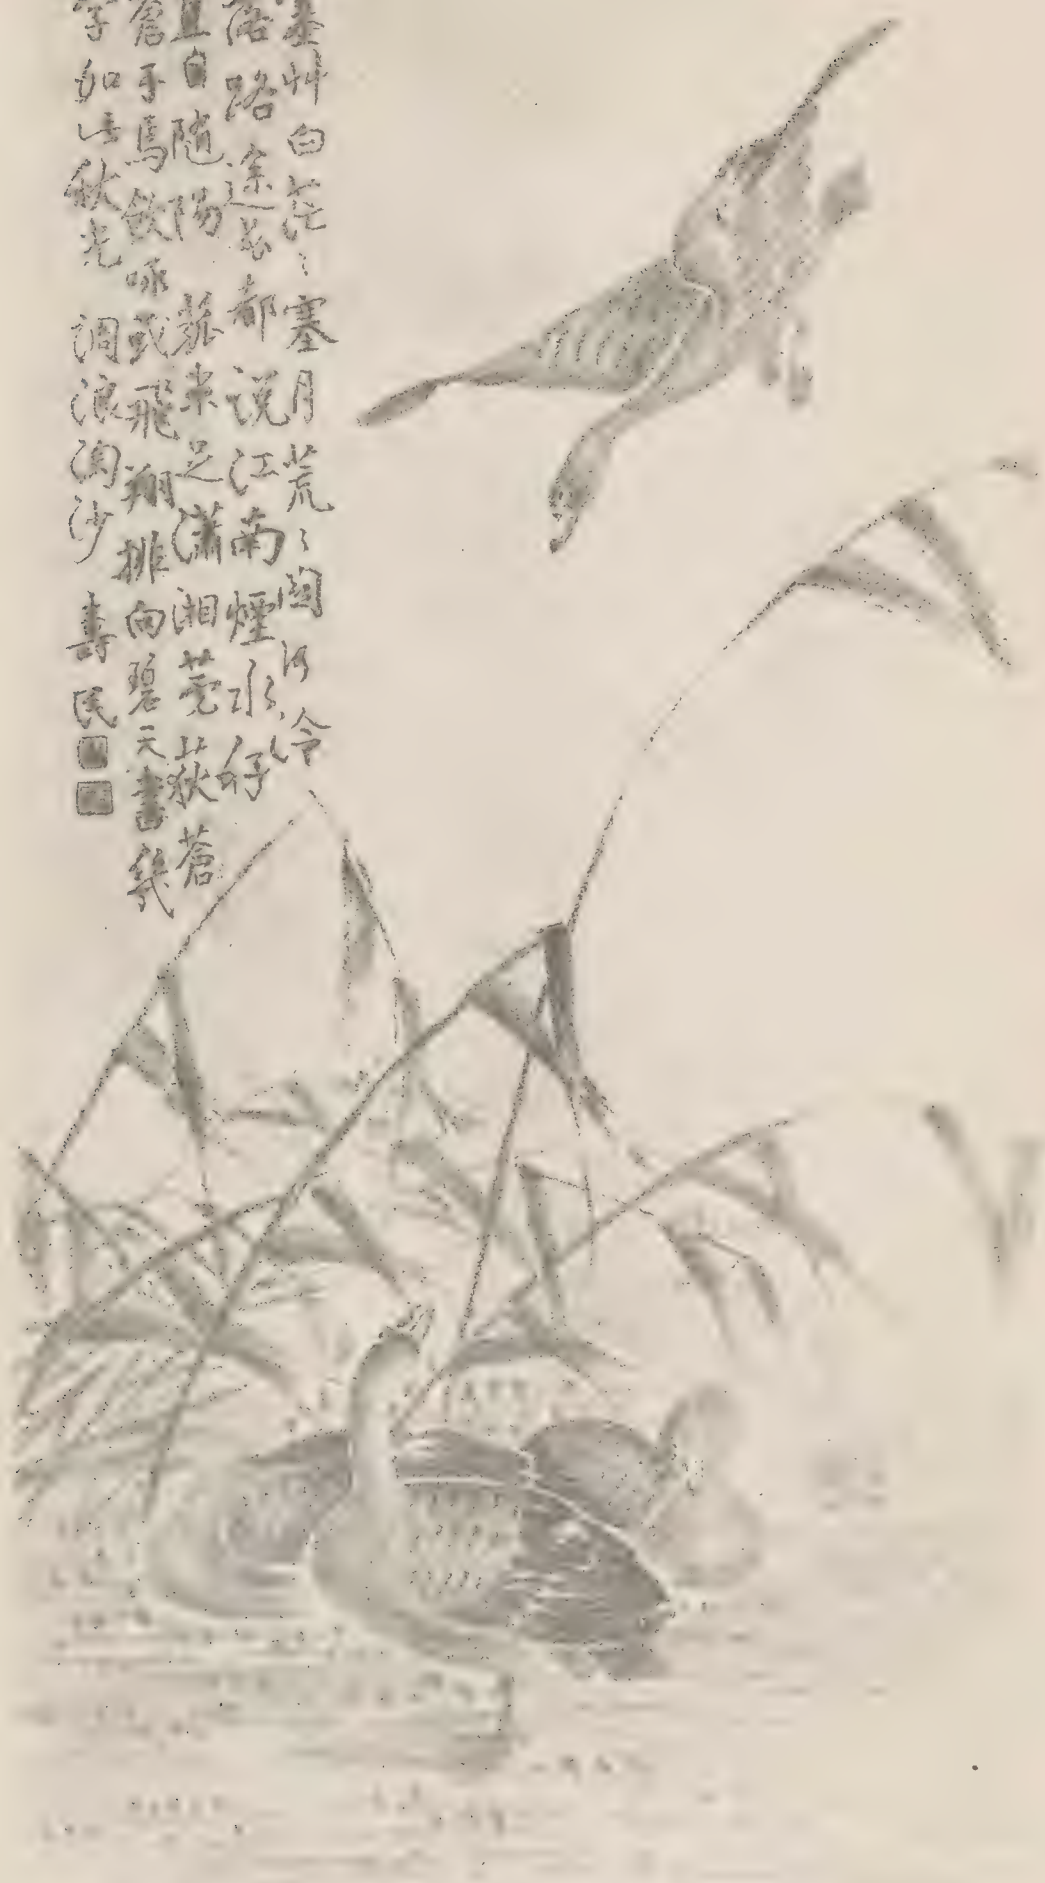 塞艸白茫〻塞月荒〻關河冷
落路途長都說江南煙水好
且自隨陽 菰米足瀟湘荻蒼
蒼于焉飲啄或飛翔排向碧天書幾
字如此秋光 調浪淘沙 壽民